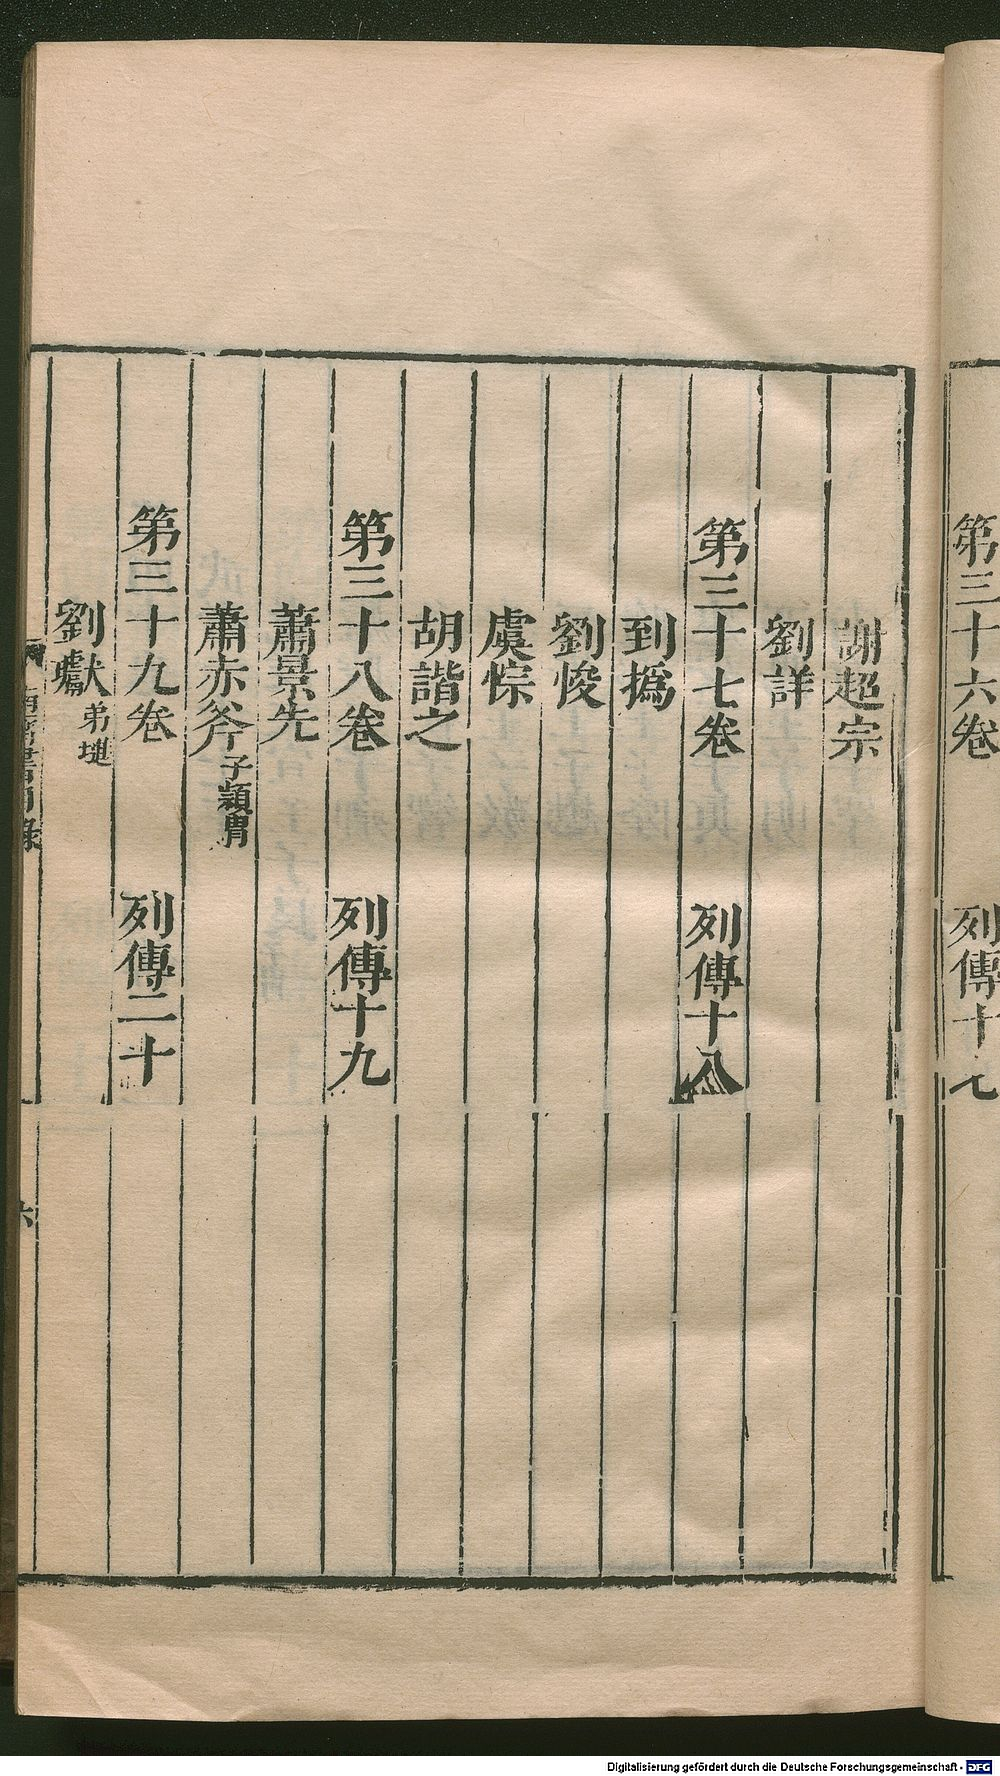 第三十六卷 列傳十七
謝超宗
劉詳
第三十七卷 列傳十八
到撝
劉悛
虞悰
胡諧之
第三十八卷 列傳十九
蕭景先
蕭赤斧子穎胄
第三十九卷 列傳二十
劉瓛弟璡
南齊書目錄
六
Digitalisierung gefördert durch die Deutsche Forschungsgemeinschaft - DFG